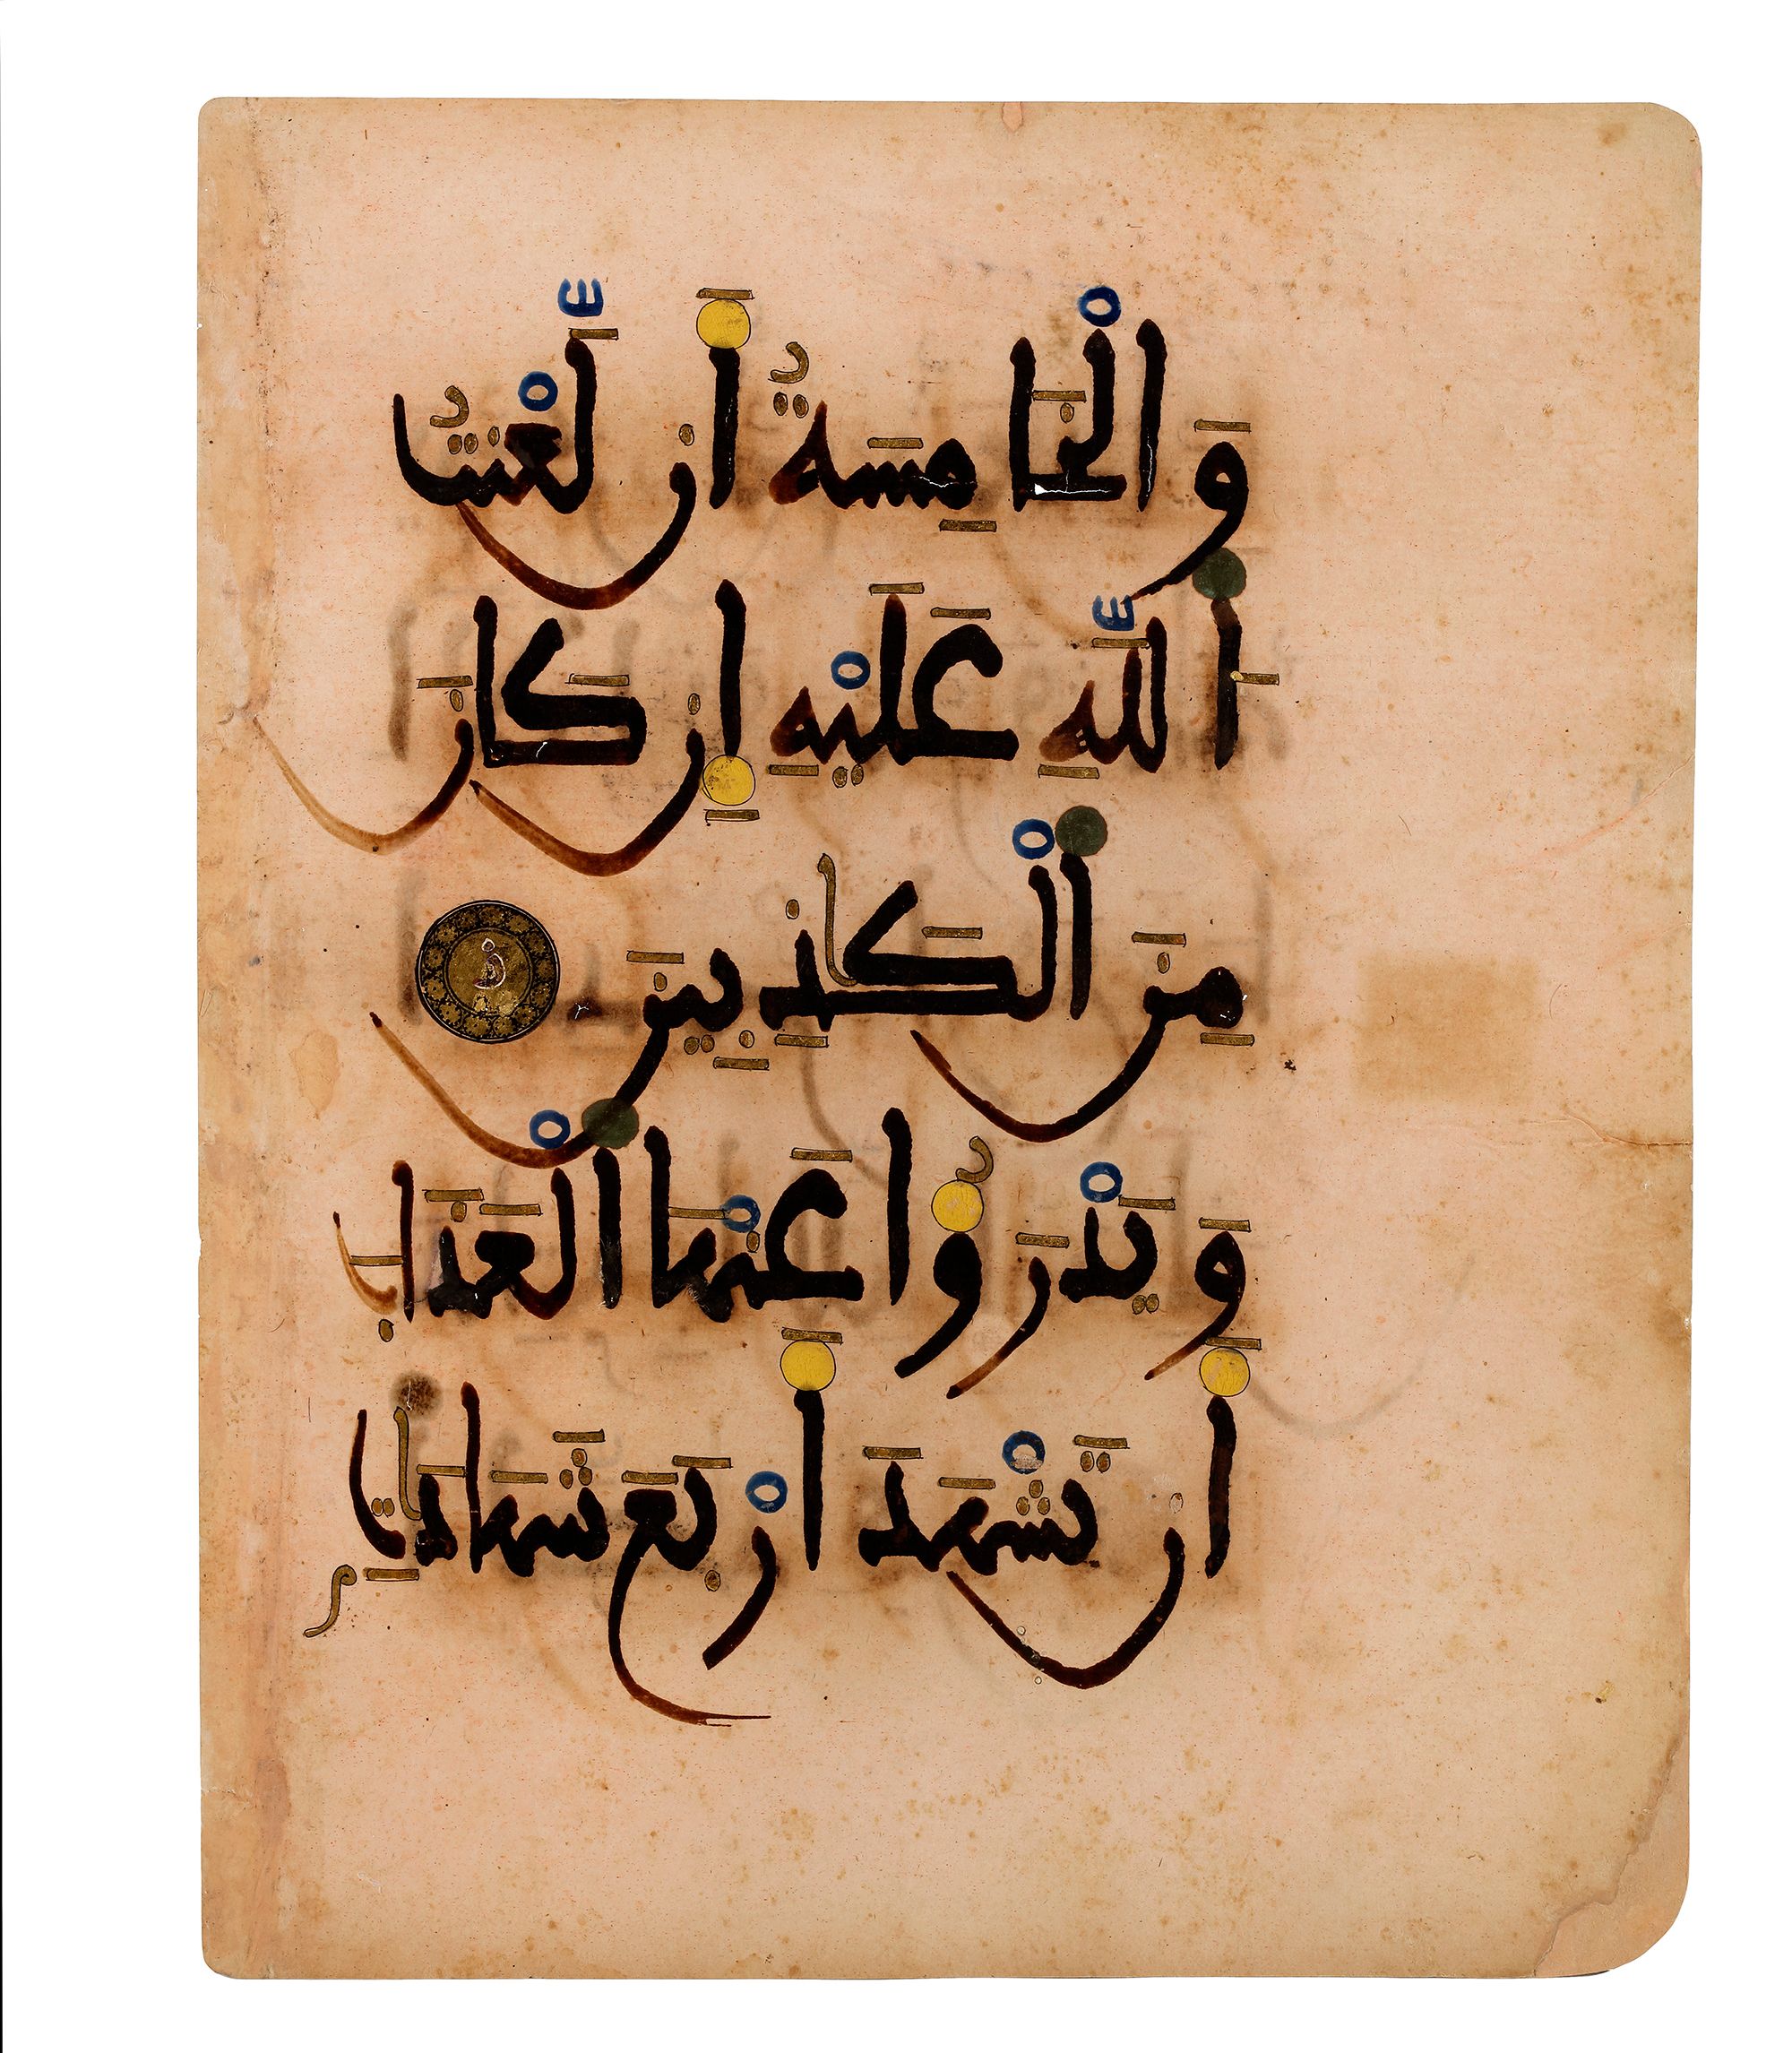 وَالْخَامِسَةُ أَن لَّعْنَتُ
اللَّهِ عَلَيْهِ إِن كَانَ
مِنَ الْكَٰذِبِينَ ز
وَيَدْرَؤُا عَنْهَا الْعَذَابَ
أَن تَشْهَدَ أَرْبَعَ شَهَادَٰتِۭ